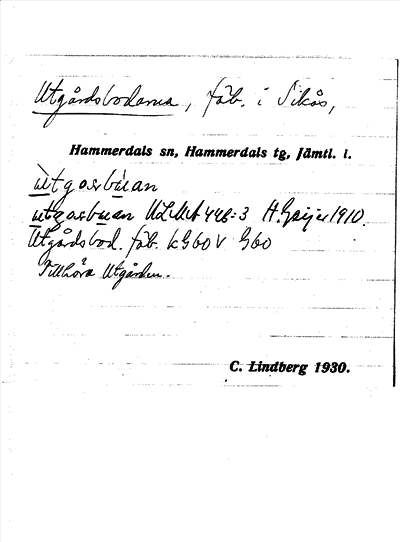 Utgårdsbodarna, fäb. i Sikås,
Hammerdals sn, Hammerdals tg, Jämtl. l.
ùtgasbùan
ùtgasbùan ULMA 446:3 H. Geijer 1910.
Utgårdsbod. fäb. kG60V G60
Tillhöra Utgården.
C. Lindberg 1930.